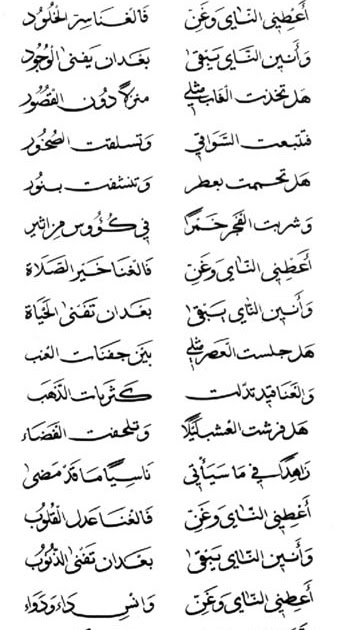 أَعْطِنِي النَّايَ وَغَنِّ فَالْغِنَا سِرُّ الْخُلُود
وَأَنِينُ النَّايِ يَبْقَى بَعْدَ أَنْ يَفْنَى الْوُجُود
هَل تَخِذْتَ الْغَابَ مِثْلِي مَنْزِلًا دُونَ الْقُصُور
فَتَتَبَّعْتَ السَّوَاقِي وَتَسَلَّقْتَ الصُّخُور
هَل تَحَمَّمْتَ بِعِطْرٍ وَتَنَشَّفْتَ بِنُور
وَشَرِبْتَ الْفَجْرَ خَمْرًا فِي كُؤُوسٍ مِنْ أَثِير
أَعْطِنِي النَّايَ وَغَنِّ فَالْغِنَا خَيْرُ الصَّلَاة
وَأَنِينُ النَّايِ يَبْقَى بَعْدَ أَنْ تَفْنَى الْحَيَاة
هَل جَلَسْتَ الْعَصْرَ مِثْلِي بَيْنَ جَفَنَاتِ الْعِنَب
وَالْعَنَاقِيدُ تَدَلَّت كَثُرَيَّاتِ الذَّهَب
هَل فَرَشْتَ الْعُشْبَ لَيْلًا وَتَلَحَّفْتَ الْفَضَاء
زَاهِدًا فِي مَا سَيَأْتِي نَاسِيًا مَا قَدْ مَضَى
أَعْطِنِي النَّايَ وَغَنِّ فَالْغِنَا عَدْلُ الْقُلُوب
وَأَنِينُ النَّايِ يَبْقَى بَعْدَ أَنْ تَفْنَى الذُّنُوب
أَعْطِنِي النَّايَ وَغَنِّ وَانْسَ دَاءً وَدَوَاء